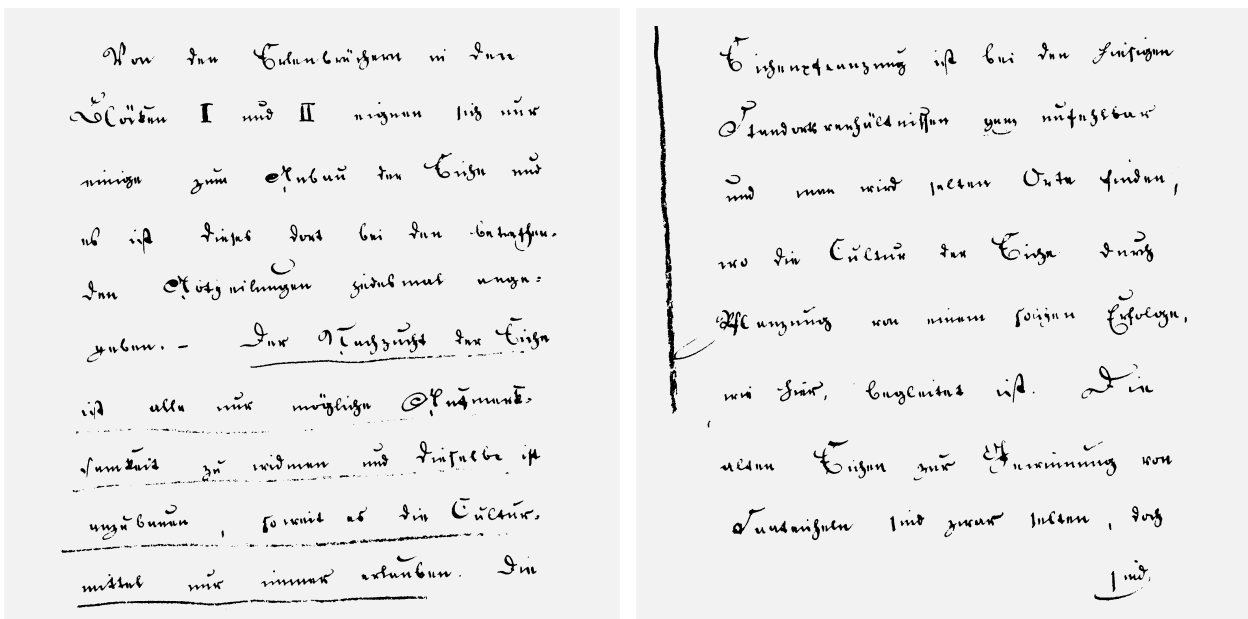 Von den Erlenbrüchern in den
Blöcken I und II eignen sich nur
einige zum Anbau der Eiche und
es ist dieses dort bei den betreffen-
den Abtheilungen jedesmal ange-
geben. – Der Nachzucht der Eiche
ist alle nur mögliche Aufmerk-
samkeit zu widmen und dieselbe ist
anzubauen, soweit es die Cultur-
mittel nur immer erlauben. Die
Eichenpflanzung ist bei den hiesigen
Standortsverhältnissen ganz unfehlbar
und man wird selten Orte finden,
wo die Cultur der Eiche durch
Pflanzung von einem solchen Erfolge,
wie hier, begleitet ist. Die
alten Eichen zur Gewinnung von
Saateicheln sind zwar selten, doch
sind